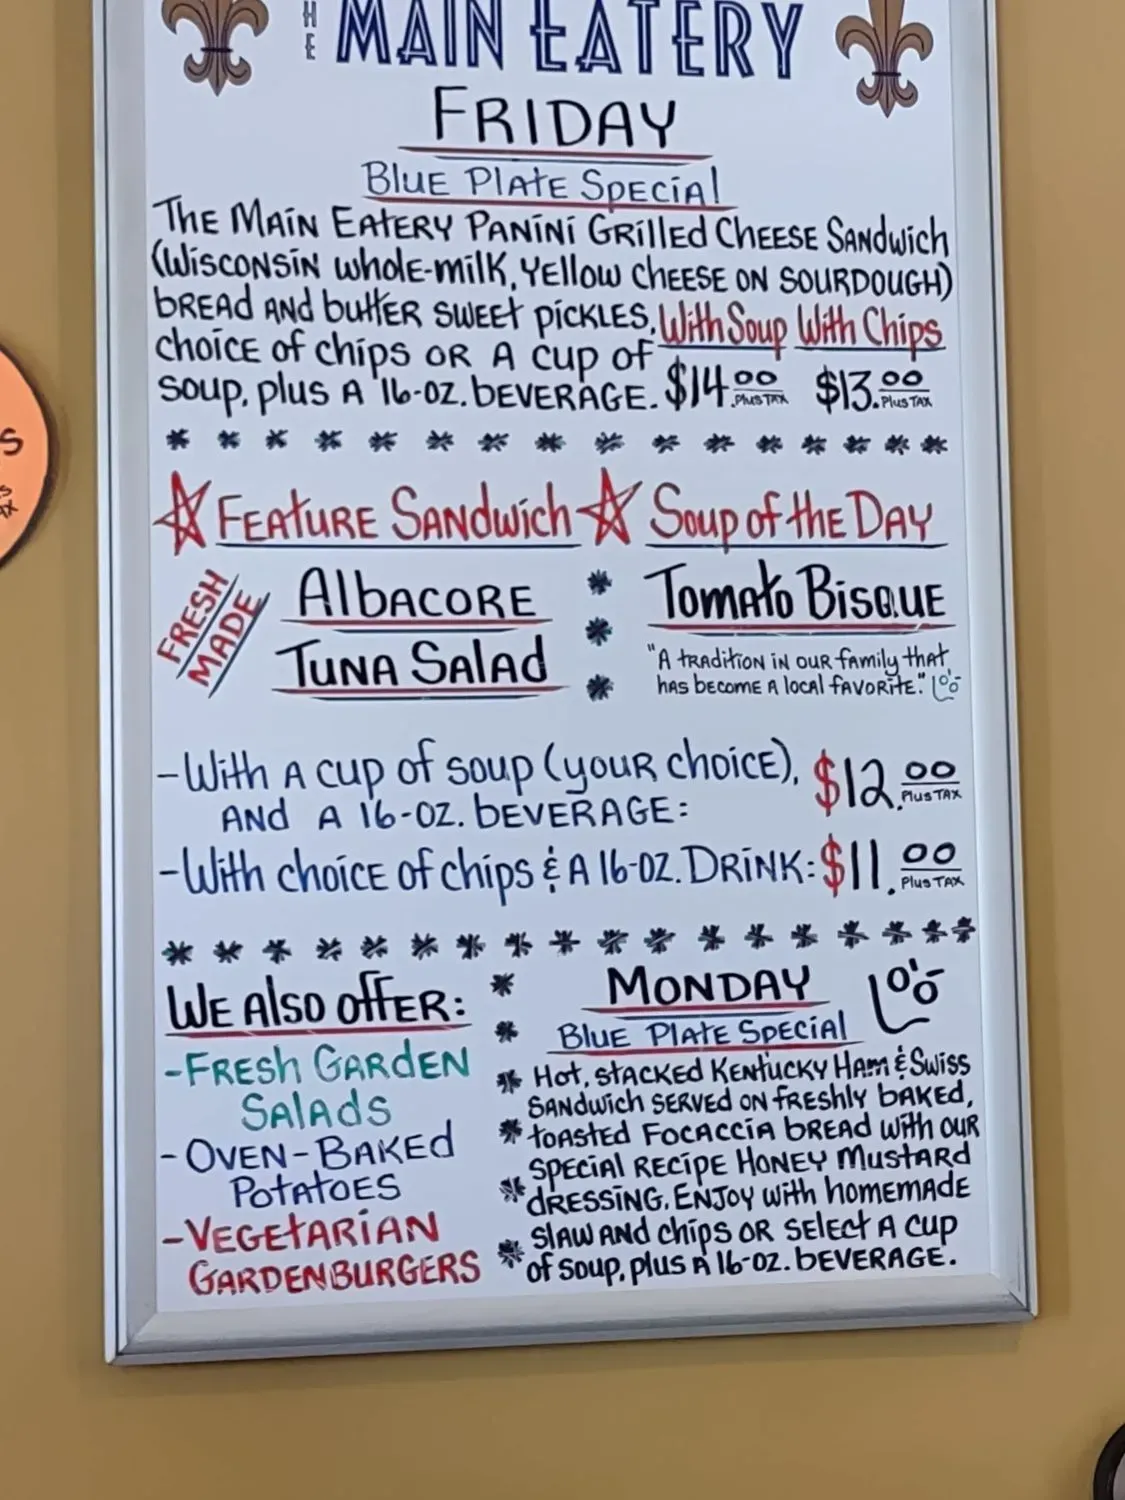 THE MAIN EATERY
FRIDAY
Blue Plate Special
The Main Eatery Panini Grilled Cheese Sandwich
(Wisconsin whole-milk, yellow cheese on sourdough)
bread and butter sweet pickles, With Soup With Chips
choice of chips or a cup of
soup, plus a 16-oz. beverage. $14.00 Plus TAX $13.00 Plus TAX
* * * * * * * * * * * * * * *
Feature Sandwich Soup of the Day
FRESH MADE
Albacore
Tuna Salad
Tomato Bisque
"A tradition in our family that
has become a local favorite."
- With a cup of soup (your choice),
and a 16-oz. beverage: $12.00 Plus TAX
- With choice of chips & a 16-oz. Drink: $11.00 Plus TAX
* * * * * * * * * * * * * * * * *
We Also offer:
- Fresh Garden
Salads
- Oven-Baked
Potatoes
- Vegetarian
Gardenburgers
MONDAY
Blue Plate Special
Hot, stacked Kentucky Ham & Swiss
sandwich served on freshly baked,
toasted Focaccia bread with our
special recipe Honey Mustard
dressing. Enjoy with homemade
slaw and chips or select a cup
of soup, plus a 16-oz. beverage.